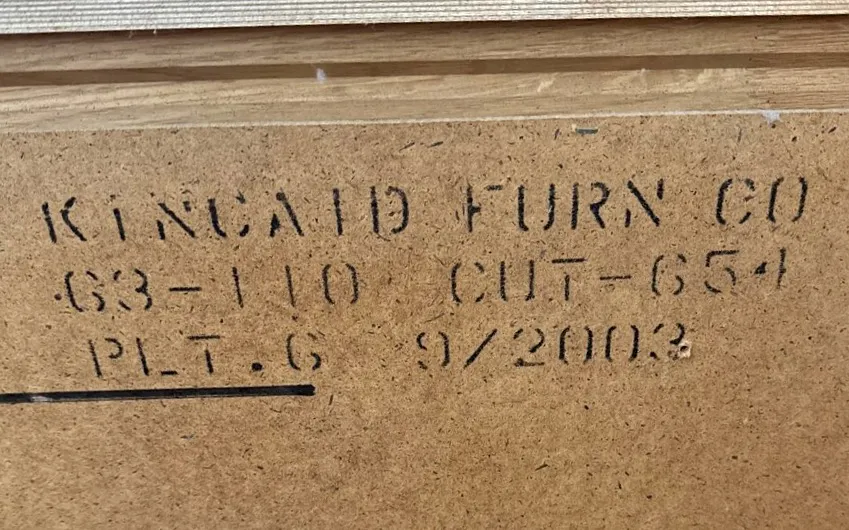 KINCAID FURN CO
63-110 CUT-654
PLT.6 9/2003